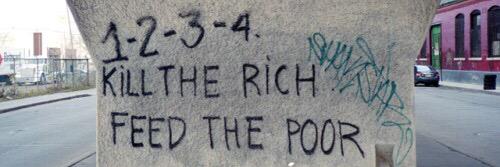 1-2-3-4.
KILL THE RICH
FEED THE POOR